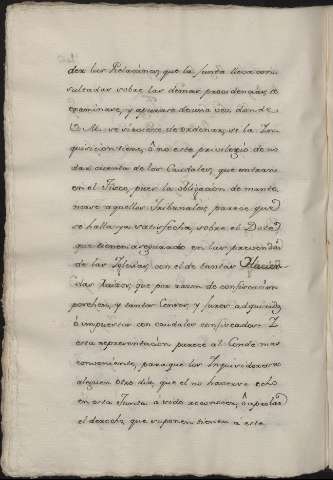 der las Relaciones, que la Junta lleva con
sultadas sobre las demas procidencias, se
examinase, y apurase de una vez, donde
V. M. se sirviese de ordenar, si la In
quisicion tiene, ô no este privilegio de no
dar cuenta de los Caudales, que entran
en el Fisco, pues la obligacion de mante
nerse aquellos Tribunales, parece que
se halla ya satisfecha, sobre el Dote
que tienen asegurado en las prevendas
de las Iglesias, con el de tantas Hacien
das raizes, que por razon de confiscacion
posehen, y tantos Censos, y Juros adquiridos
ò impuestos con caudales confiscados: I
esta representacion parece al Conde mas
conveniente, para que los Inquisidores no
aleguen otro dia, que el no haverse echo
en esta Junta à sido reconocer, ô apoyar
el derecho, que suponen tienen a este